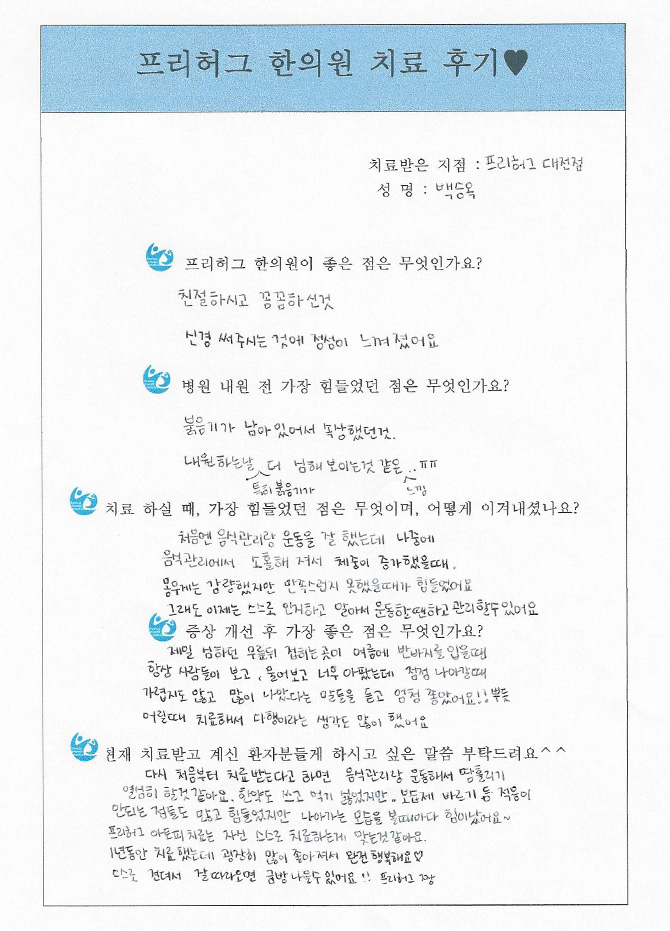 프리허그 한의원 치료 후기♥
치료받은 지점 : 프리허그 대전점
성 명 : 백승옥
프리허그 한의원이 좋은 점은 무엇인가요?
친절하시고 꼼꼼하신것
신경 써주시는 것에 정성이 느껴졌어요
병원 내원 전 가장 힘들었던 점은 무엇인가요?
붉음기가 남아있어서 속상했던것.
내원하는날 더 심해보이는것 같은..ㅠㅠ
특히 붉음기가 느낌
치료 하실 때, 가장 힘들었던 점은 무엇이며, 어떻게 이겨내셨나요?
처음엔 음식관리랑 운동을 잘 했는데 나중에
음식관리에서 소홀해 져서 체중이 증가했을때.
몸무게는 감량했지만 만족스럽지 못했을때가 힘들었어요
그래도 이제는 스스로 인지하고 알아서 운동할땐하고 관리할수있어요
증상 개선 후 가장 좋은 점은 무엇인가요?
제일 심하던 무릎뒤 접히는곳이 여름에 반바지를 입을때
항상 사람들이 보고, 물어보고 너무 아팠는데 점점 나아갈때
가렵지도 않고 많이 나았다는 말들을 듣고 엄청 좋았어요!! 뿌듯
어릴때 치료해서 다행이라는 생각도 많이 했어요
현재 치료받고 계신 환자분들게 하시고 싶은 말씀 부탁드려요^^
다시 처음부터 치료받는다고 하면 음식관리랑 운동해서 땀흘리기
열심히 할것같아요. 한약도 쓰고 먹기 싫었지만, 보습제 바르기 등 적응이
안되는 점들도 많고 힘들었지만 나아가는 모습을 볼때마다 힘이났어요~
프리허그 아토피치료는 자신 스스로 치료하는게 맞는것같아요.
1년동안 치료했는데 굉장히 많이 좋아져서 완전행복해요♡
스스로 견뎌서 잘 따라오면 금방 나을수있어요!! 프리허그 짱